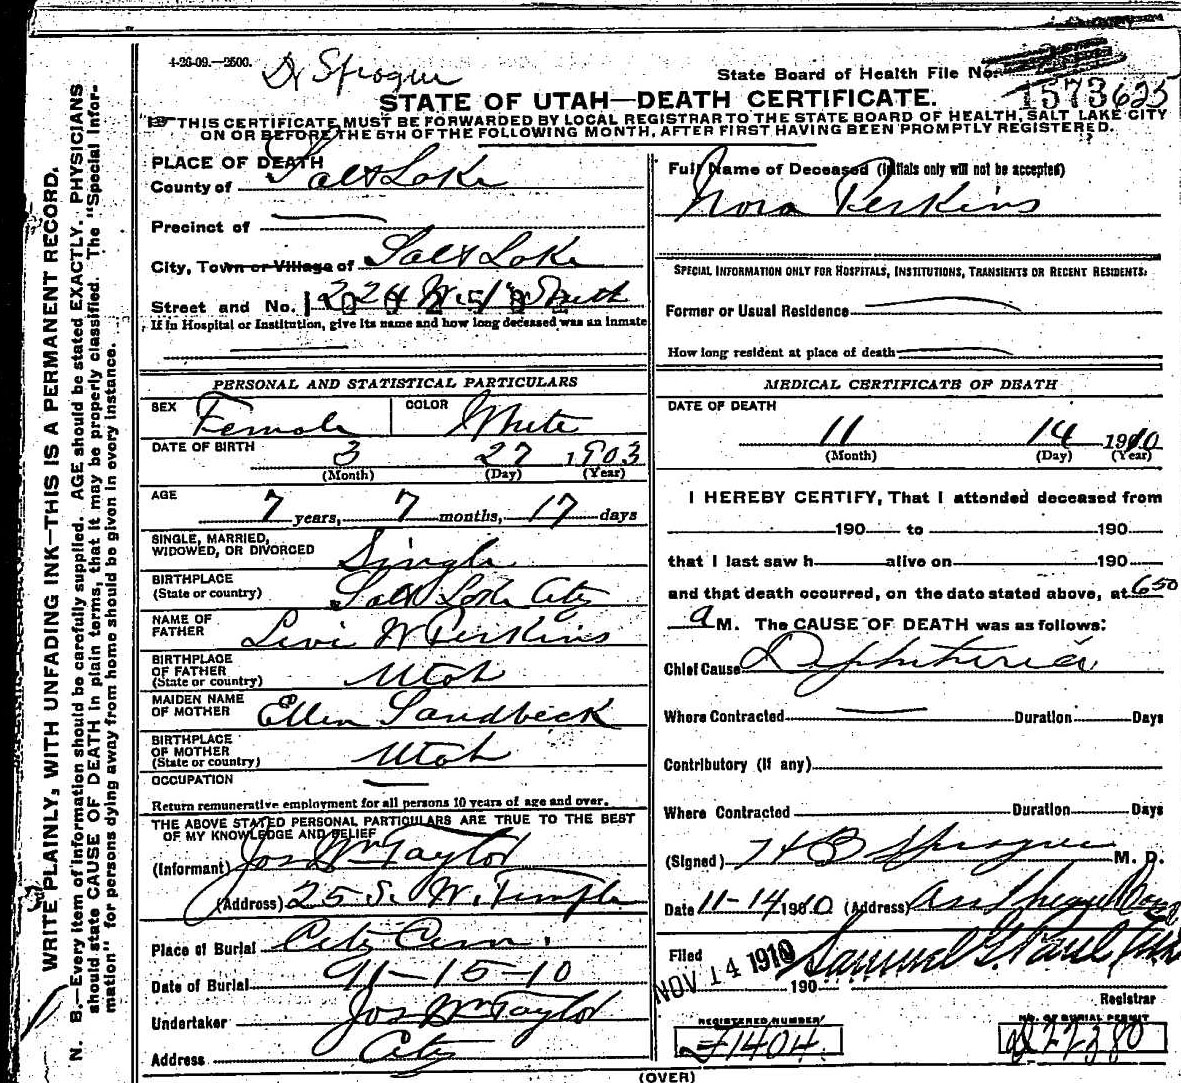 WRITE PLAINLY, WITH UNFADING INK—THIS IS A PERMANENT RECORD.
N. B.—Every item of Information should be carefully supplied. AGE should be stated EXACTLY. PHYSICIANS
should state CAUSE OF DEATH in plain terms, that it may be properly classified. The "Special Infor-
mation" for persons dying away from home should be given in every instance.
4-26-09.—2500.
Dr Sprague
State Board of Health File No.
1573 625
STATE OF UTAH—DEATH CERTIFICATE.
THIS CERTIFICATE MUST BE FORWARDED BY LOCAL REGISTRAR TO THE STATE BOARD OF HEALTH, SALT LAKE CITY
ON OR BEFORE THE 5TH OF THE FOLLOWING MONTH, AFTER FIRST HAVING BEEN PROMPTLY REGISTERED.
PLACE OF DEATH
County of Salt Lake
Precinct of
City, Town or Village of Salt Lake
Street and No. 224 W. 1st South
If in Hospital or Institution, give its name and how long deceased was an inmate
Full Name of Deceased (Initials only will not be accepted)
Nora Perkins
SPECIAL INFORMATION ONLY FOR HOSPITALS, INSTITUTIONS, TRANSIENTS OR RECENT RESIDENTS.
Former or Usual Residence
How long resident at place of death
PERSONAL AND STATISTICAL PARTICULARS
SEX Female COLOR White
DATE OF BIRTH 3 27 1903
(Month) (Day) (Year)
AGE
7 years, 7 months, 17 days
SINGLE, MARRIED,
WIDOWED, OR DIVORCED Single
BIRTHPLACE
(State or country) Salt Lake City
NAME OF
FATHER Levi W Perkins
BIRTHPLACE
OF FATHER
(State or country) Utah
MAIDEN NAME
OF MOTHER Ellen Sandbeck
BIRTHPLACE
OF MOTHER
(State or country) Utah
OCCUPATION
Return remunerative employment for all persons 10 years of age and over.
THE ABOVE STATED PERSONAL PARTICULARS ARE TRUE TO THE BEST
OF MY KNOWLEDGE AND BELIEF
(Informant) Jos Wm Taylor
(Address) 25 S. W. Temple
Place of Burial City Cem.
Date of Burial 11-15-10
Undertaker Jos Wm Taylor
Address City
MEDICAL CERTIFICATE OF DEATH
DATE OF DEATH
11 14 1910
(Month) (Day) (Year)
I HEREBY CERTIFY, That I attended deceased from
190 to 190
that I last saw h alive on 190
and that death occurred, on the date stated above, at 6 50
a M. The CAUSE OF DEATH was as follows:
Chief Cause Diphtheria
Where Contracted Duration Days
Contributory (If any)
Where Contracted Duration Days
(Signed) H B Sprague M. D.
Date 11-14 1910 (Address)
Filed
NOV 14 1910 Samuel G. Paul
190
Registrar
REGISTERED NUMBER
1404
NO. OF BURIAL PERMIT
22380
(OVER)